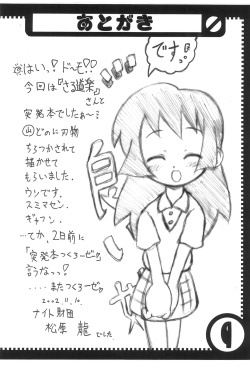 あとがき
ですっ。
はい、!ド〜モ!!
今回は『さる道楽』
さんと
突発本でしたぁ〜!
山どのに刃物
ちらつかされて
描かせて
もらいました.
ウソです.
スミマセン.
ギャフン.
…てか、2日前に
「突発本つくろーぜ」
言うなっっ?
……またつくろーぜ
2002.11.10.
ナイト財団
松原 龍でした
良いしゃ
9